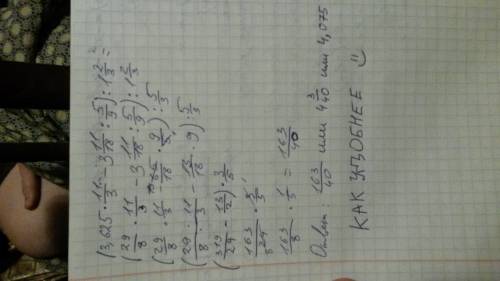 (3,625 · 11/3 - 3 11/18 : 5/9) : 1 2/3 =
(29/8 · 11/3 - 3 11/18 : 5/9) : 1 2/3
(29/8 · 11/3 - 65/18 · 9/5) : 5/3
(29/8 · 11/3 - 13/18 · 9) : 5/3
(319/24 - 13/2) · 3/5
163/24 · 3/5
163/8 · 1/5 = 163/40
Ответ: 163/40 или 4 3/40 или 4,075
КАК УДОБНЕЕ =)